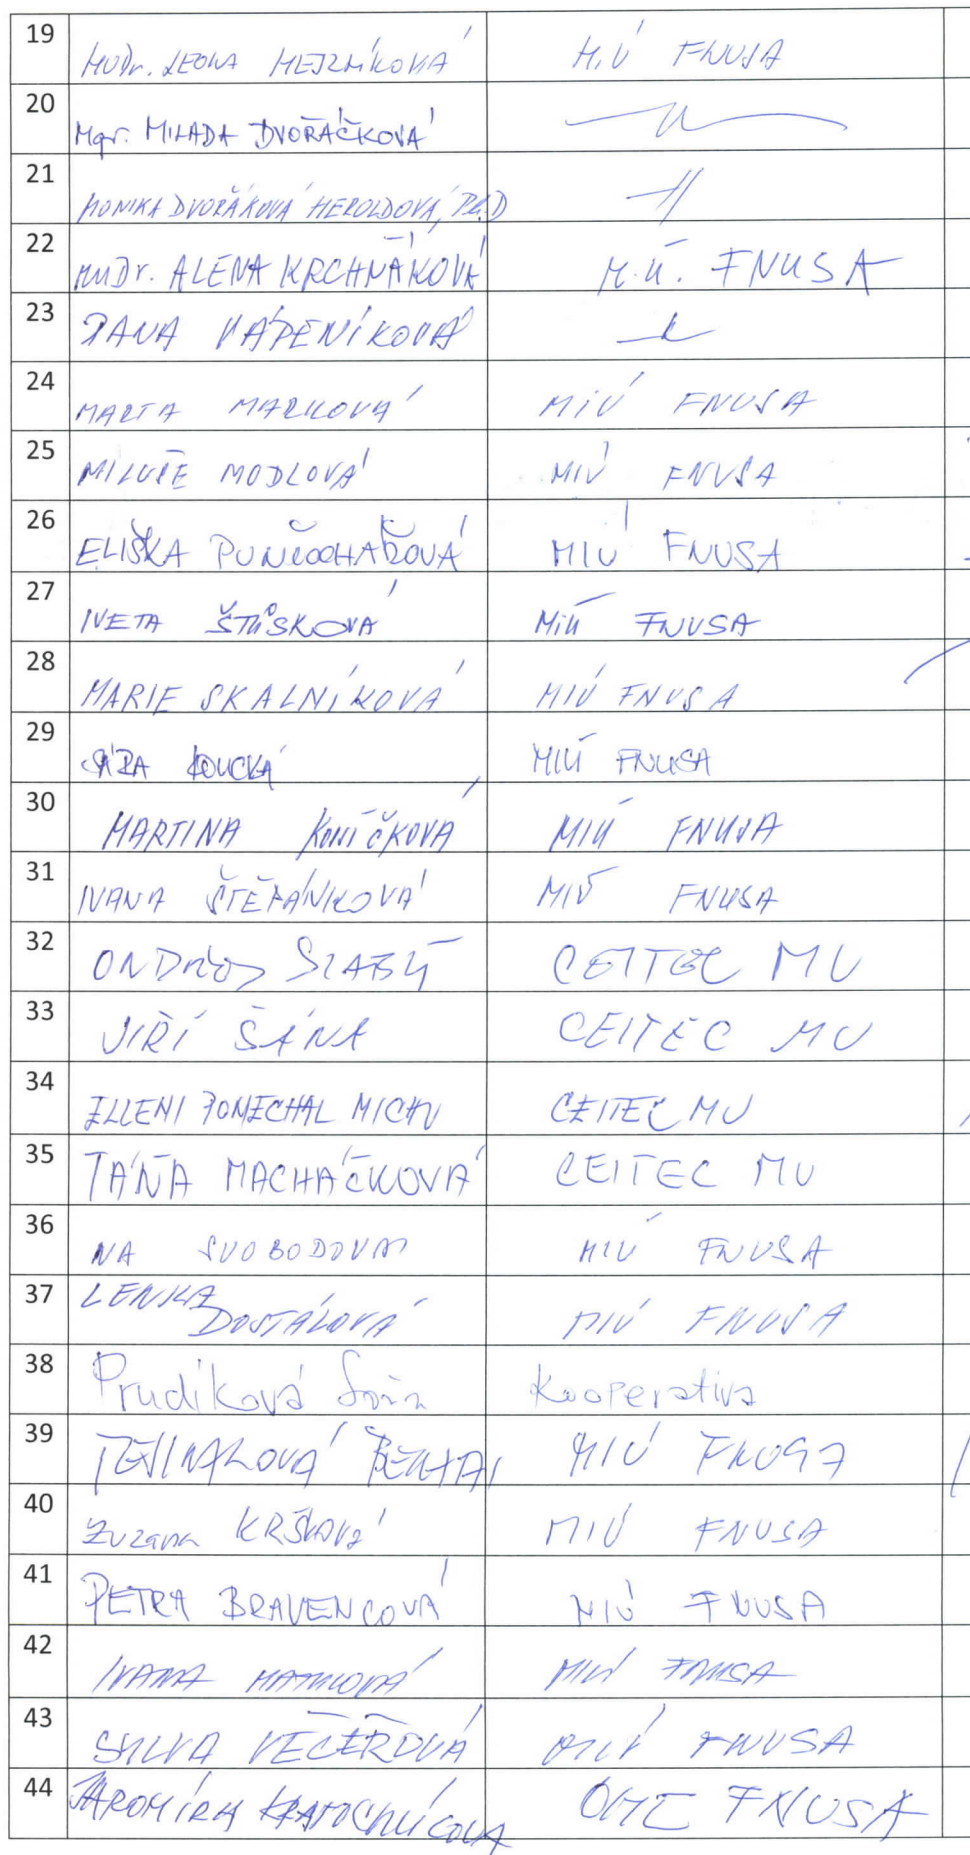 19 MUDr. LEONA MEJZLÍKOVÁ MIÚ FNUSA
20 Mgr. MILADA DVOŘÁČKOVÁ
21 MONIKA DVOŘÁKOVÁ HEROLDOVÁ, Ph.D
22 MUDr. ALENA KRCHŇÁKOVÁ M.Ú. FNUSA
23 DANA VÁPENÍKOVÁ
24 MARTA MARKOVÁ MIÚ FNUSA
25 MILUŠE MODLOVÁ MIÚ FNUSA
26 ELIŠKA PUNČOCHÁŘOVÁ MIÚ FNUSA
27 IVETA ŠTŮSKOVÁ MIÚ FNUSA
28 MARIE SKALNÍKOVÁ MIÚ FNUSA
29 SÁRA KOUCKÁ MIÚ FNUSA
30 MARTINA KONÍČKOVÁ MIÚ FNUSA
31 IVANA ŠTĚPÁNKOVÁ MIÚ FNUSA
32 ONDŘEJ SLABÝ CEITEC MU
33 JIŘÍ ŠÁNA CEITEC MU
34 ELLENI PONECHAL MICHU CEITEC MU
35 TÁŇA MACHÁČKOVÁ CEITEC MU
36 NA SVOBODOVÁ MIÚ FNUSA
37 LENKA DOSTÁLOVÁ MIÚ FNUSA
38 Prudíková Soňa Kooperativa
39 MIÚ FNUSA
40 Zuzana KRŠKOVÁ MIÚ FNUSA
41 PETRA BRAVENCOVÁ MIÚ FNUSA
42 IVANA MIÚ FNUSA
43 SYLVA VEČEŘOVÁ MIÚ FNUSA
44 JAROMÍRA KRATOCHVÍLOVÁ FNUSA